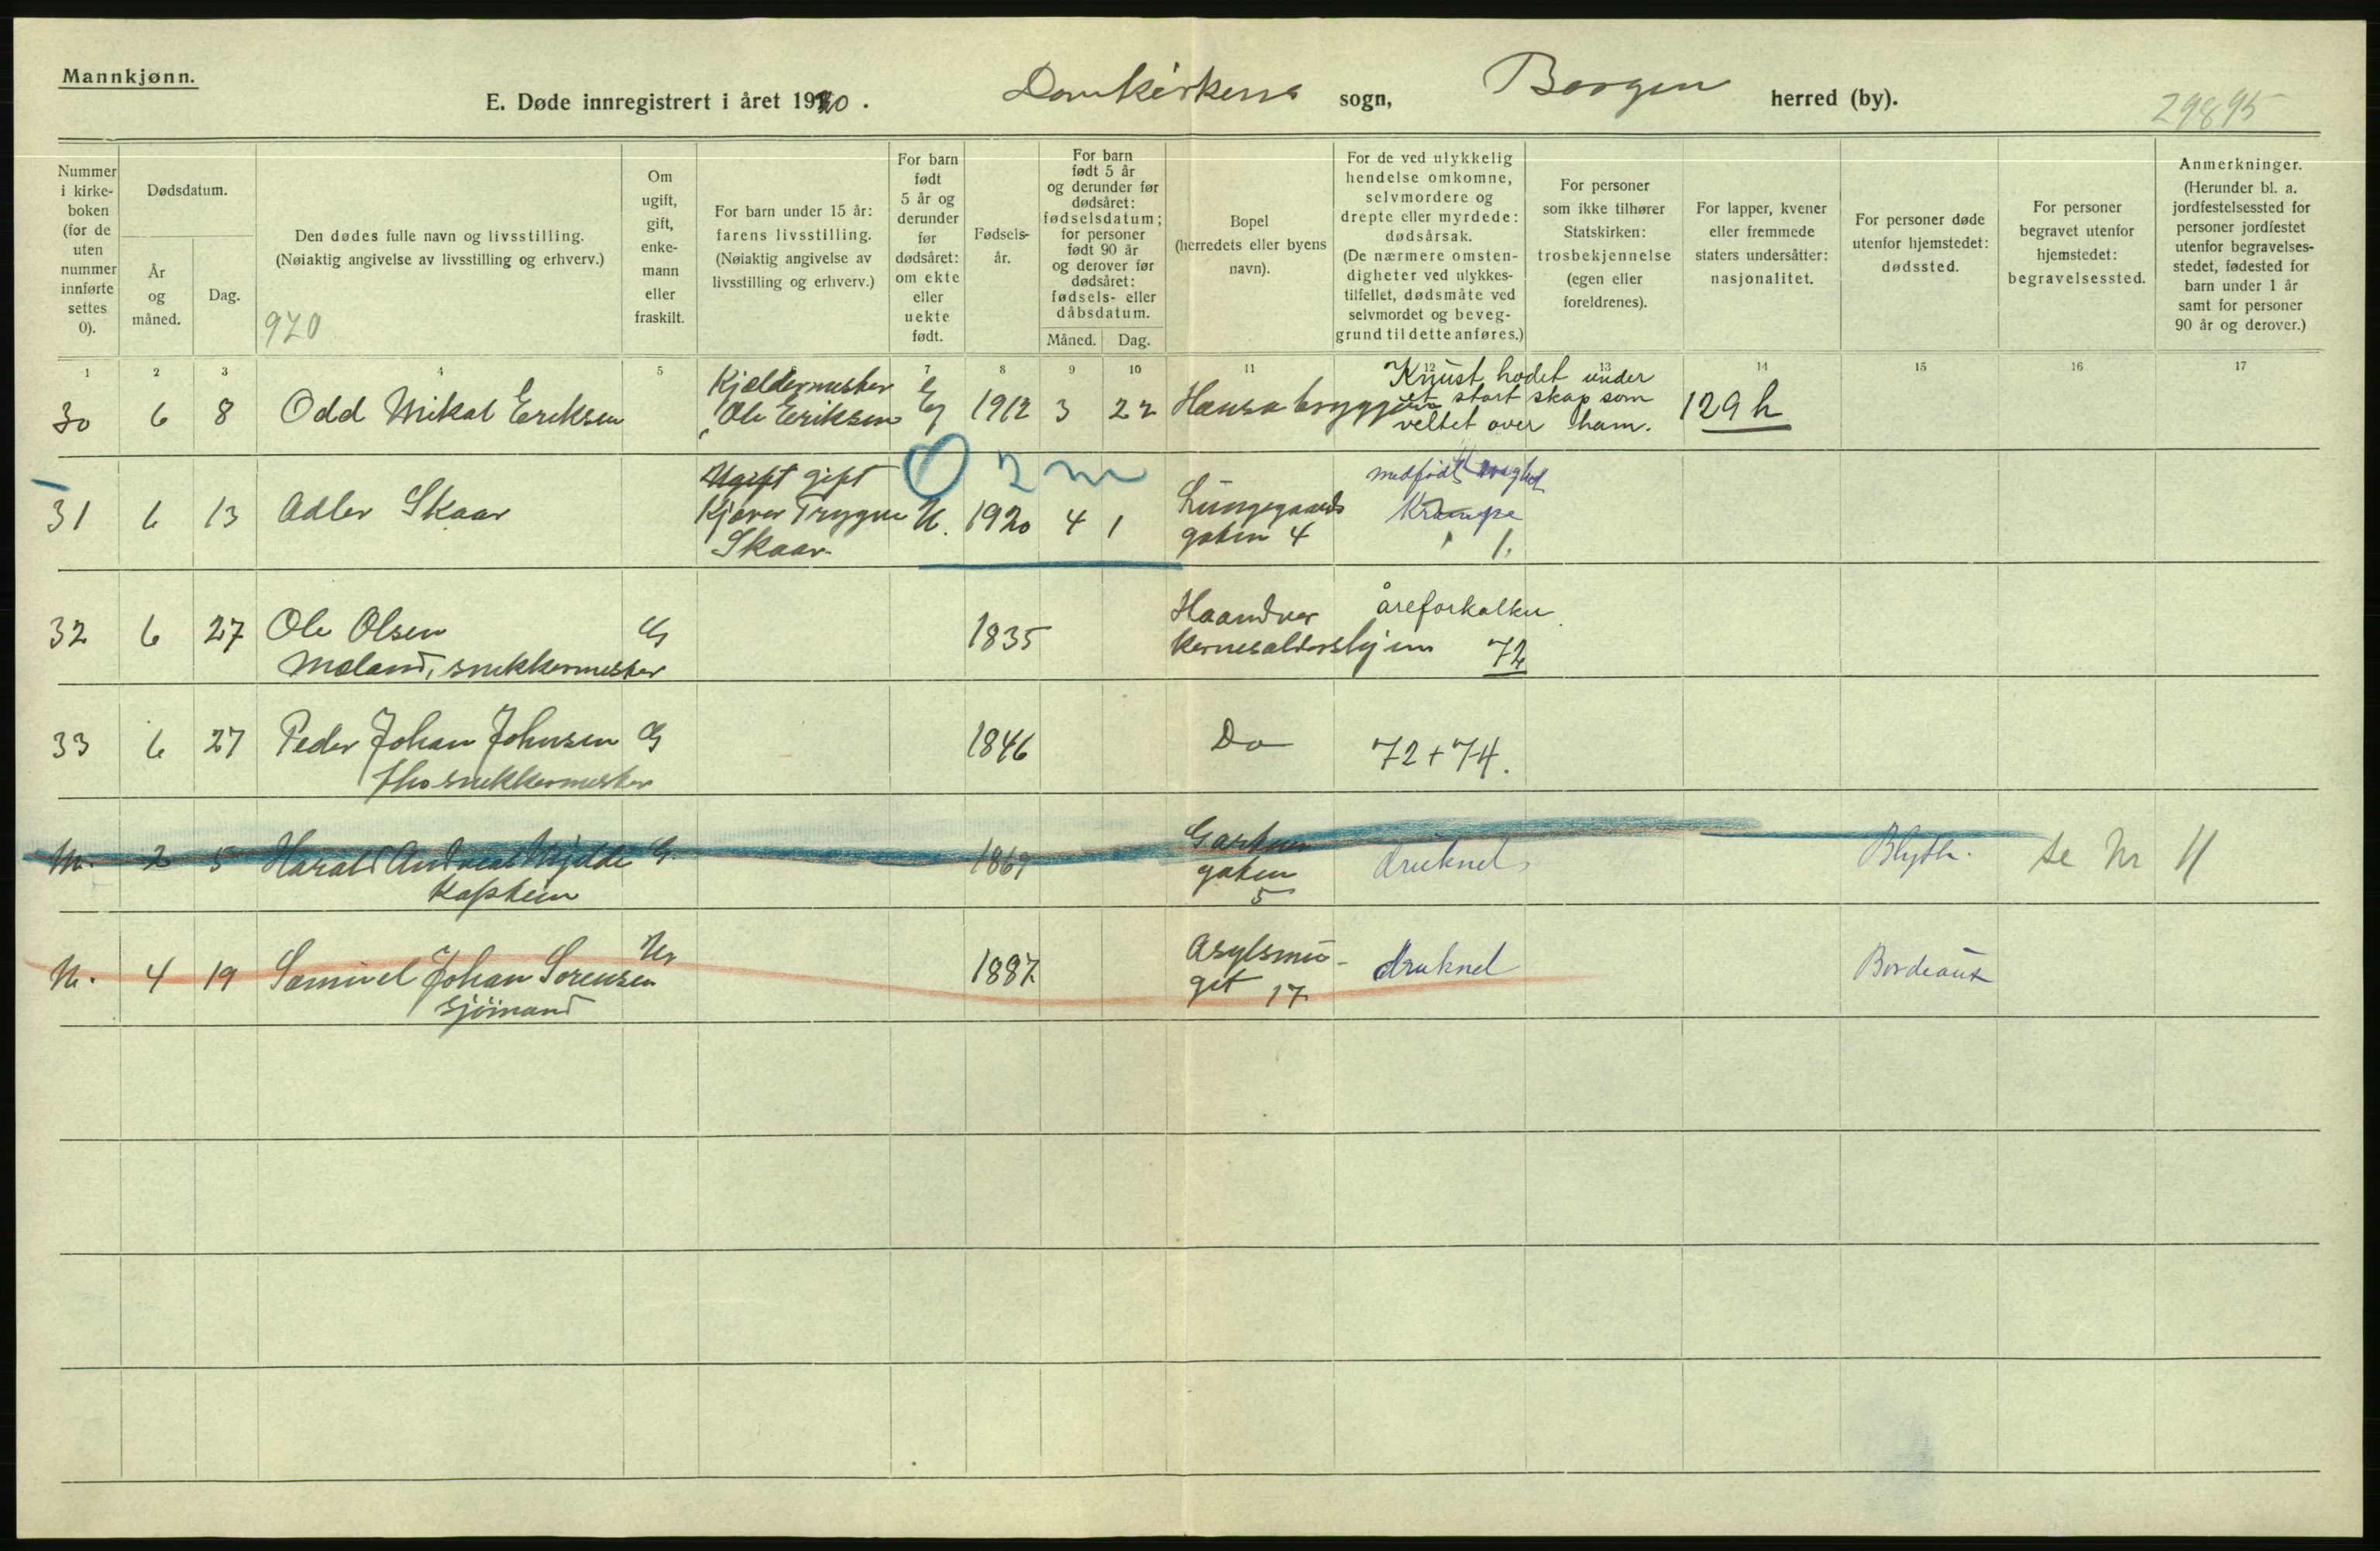 Mannkjønn.
E. Døde innregistrert i året 1920. Domkirkens sogn, Bergen herred (by).
29895
Nummer i kirke- boken (for de uten nummer innførte settes 0).
Dødsdatum.
År og måned.
Dag.
Den dødes fulle navn og livsstilling.
(Nøiaktig angivelse av livsstilling og erhverv.)
920
Om ugift, gift, enke- mann eller fraskilt.
For barn under 15 år: farens livsstilling. (Nøiaktig angivelse av livsstilling og erhverv.)
For barn født 5 år og derunder før dødsåret: om ekte eller uekte født.
Fødsels- år.
For barn født 5 år og derunder før dødsåret: fødselsdatum; for personer født 90 år og derover før dødsåret: fødsels- eller dåbsdatum.
Måned. Dag.
Bopel (herredets eller byens navn).
For de ved ulykkelig hendelse omkomne, selvmordere og drepte eller myrdede: dødsårsak. (De nærmere omsten- digheter ved ulykkes- tilfellet, dødsmåte ved selvmordet og beveg- grund til dette anføres.)
For personer som ikke tilhører Statskirken: trosbekjennelse (egen eller foreldrenes).
For lapper, kvener eller fremmede staters undersåtter: nasjonalitet.
For personer døde utenfor hjemstedet: dødssted.
For personer begravet utenfor hjemstedet: begravelsessted.
Anmerkninger. (Herunder bl. a. jordfestelsessted for personer jordfestet utenfor begravelses- stedet, fødested for barn under 1 år samt for personer 90 år og derover.)
1 2 3 4 5 7 8 9 10 11 12 13 14 15 16 17
30 6 8 Odd Mikal Eriksen Kjeldermester Ole Eriksen Eg 1912 3 22 Hansabryggeri Knust hodet under et stort skap som veltet over ham. 129 h
0 2 m
31 6 13 Adler Skaar Ugift gift Kjører Trygve Skaar U. 1920 4 1 Lungegaards gaten 4 medfødt svaghed Krampe 1.
32 6 27 Ole Olsen Moland, snekkermester G 1835 Haandver kernesaldershjem åreforkalkn. 72
33 6 27 Peder Johan Johnsen fhv snekkermester G 1846 Do 72 + 74.
U. 2 5 Harald Andreas kaptein G. 1869 Gartner gaten 5 druknet Blyth. se Nr 11
U. 4 19 Samuel Johan Sorensen sjömand Ug 1887 Asylsmu- get 17 druknet Bordeaux